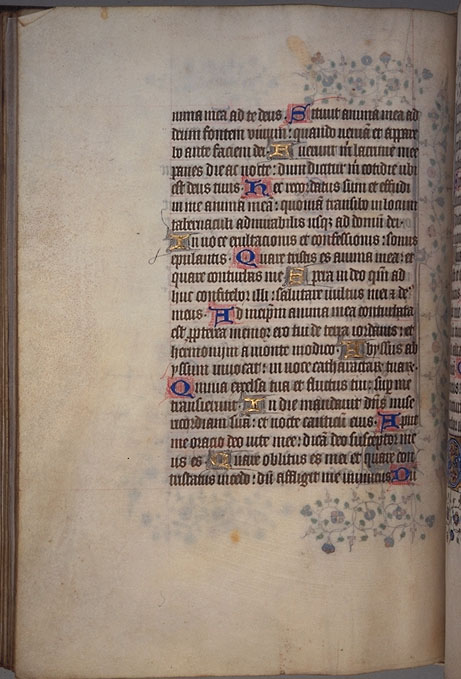 nima mea ad te deus Sitiuit anima mea ad
deum fontem viuum : quando veniã et appare
bo ante faciem dei Fuerunt m̃ lacrime mee
panes die ac nocte : dum dicitur m̃ cotidie ubi
est deus tuus · Hec recordatus sum et effudi
in me animã meã : quoniã transibo in locum
tabernaculi admirabilis usqȝ ad domũ dei ·
In uoce exultationis et confessionis : sonus
epulantis · Quare tristis es anima mea : et
quare conturbas me Spera in deo qm̃ ad
huc confitebor illi : salutare uultus mei & de
meus · Ad meipm̃ anima mea conturbata
est, ppterea memor ero tui de terra iordanis : et
hermonijm a monte modico · Abyssus ab
yssum inuocat : in uoce catharactarꝝ tuarꝝ ·
Omnia excelsa tua et fluctus tui : sup me
transierunt · In die mandauit dñs mise
ricordiam suã : et nocte canticum eius · Aput
me oratio deo uite mee : dicã deo susceptor me
us es Quare oblitus es mei et quare con
tristatus incedo : dũ affligit me inimicus